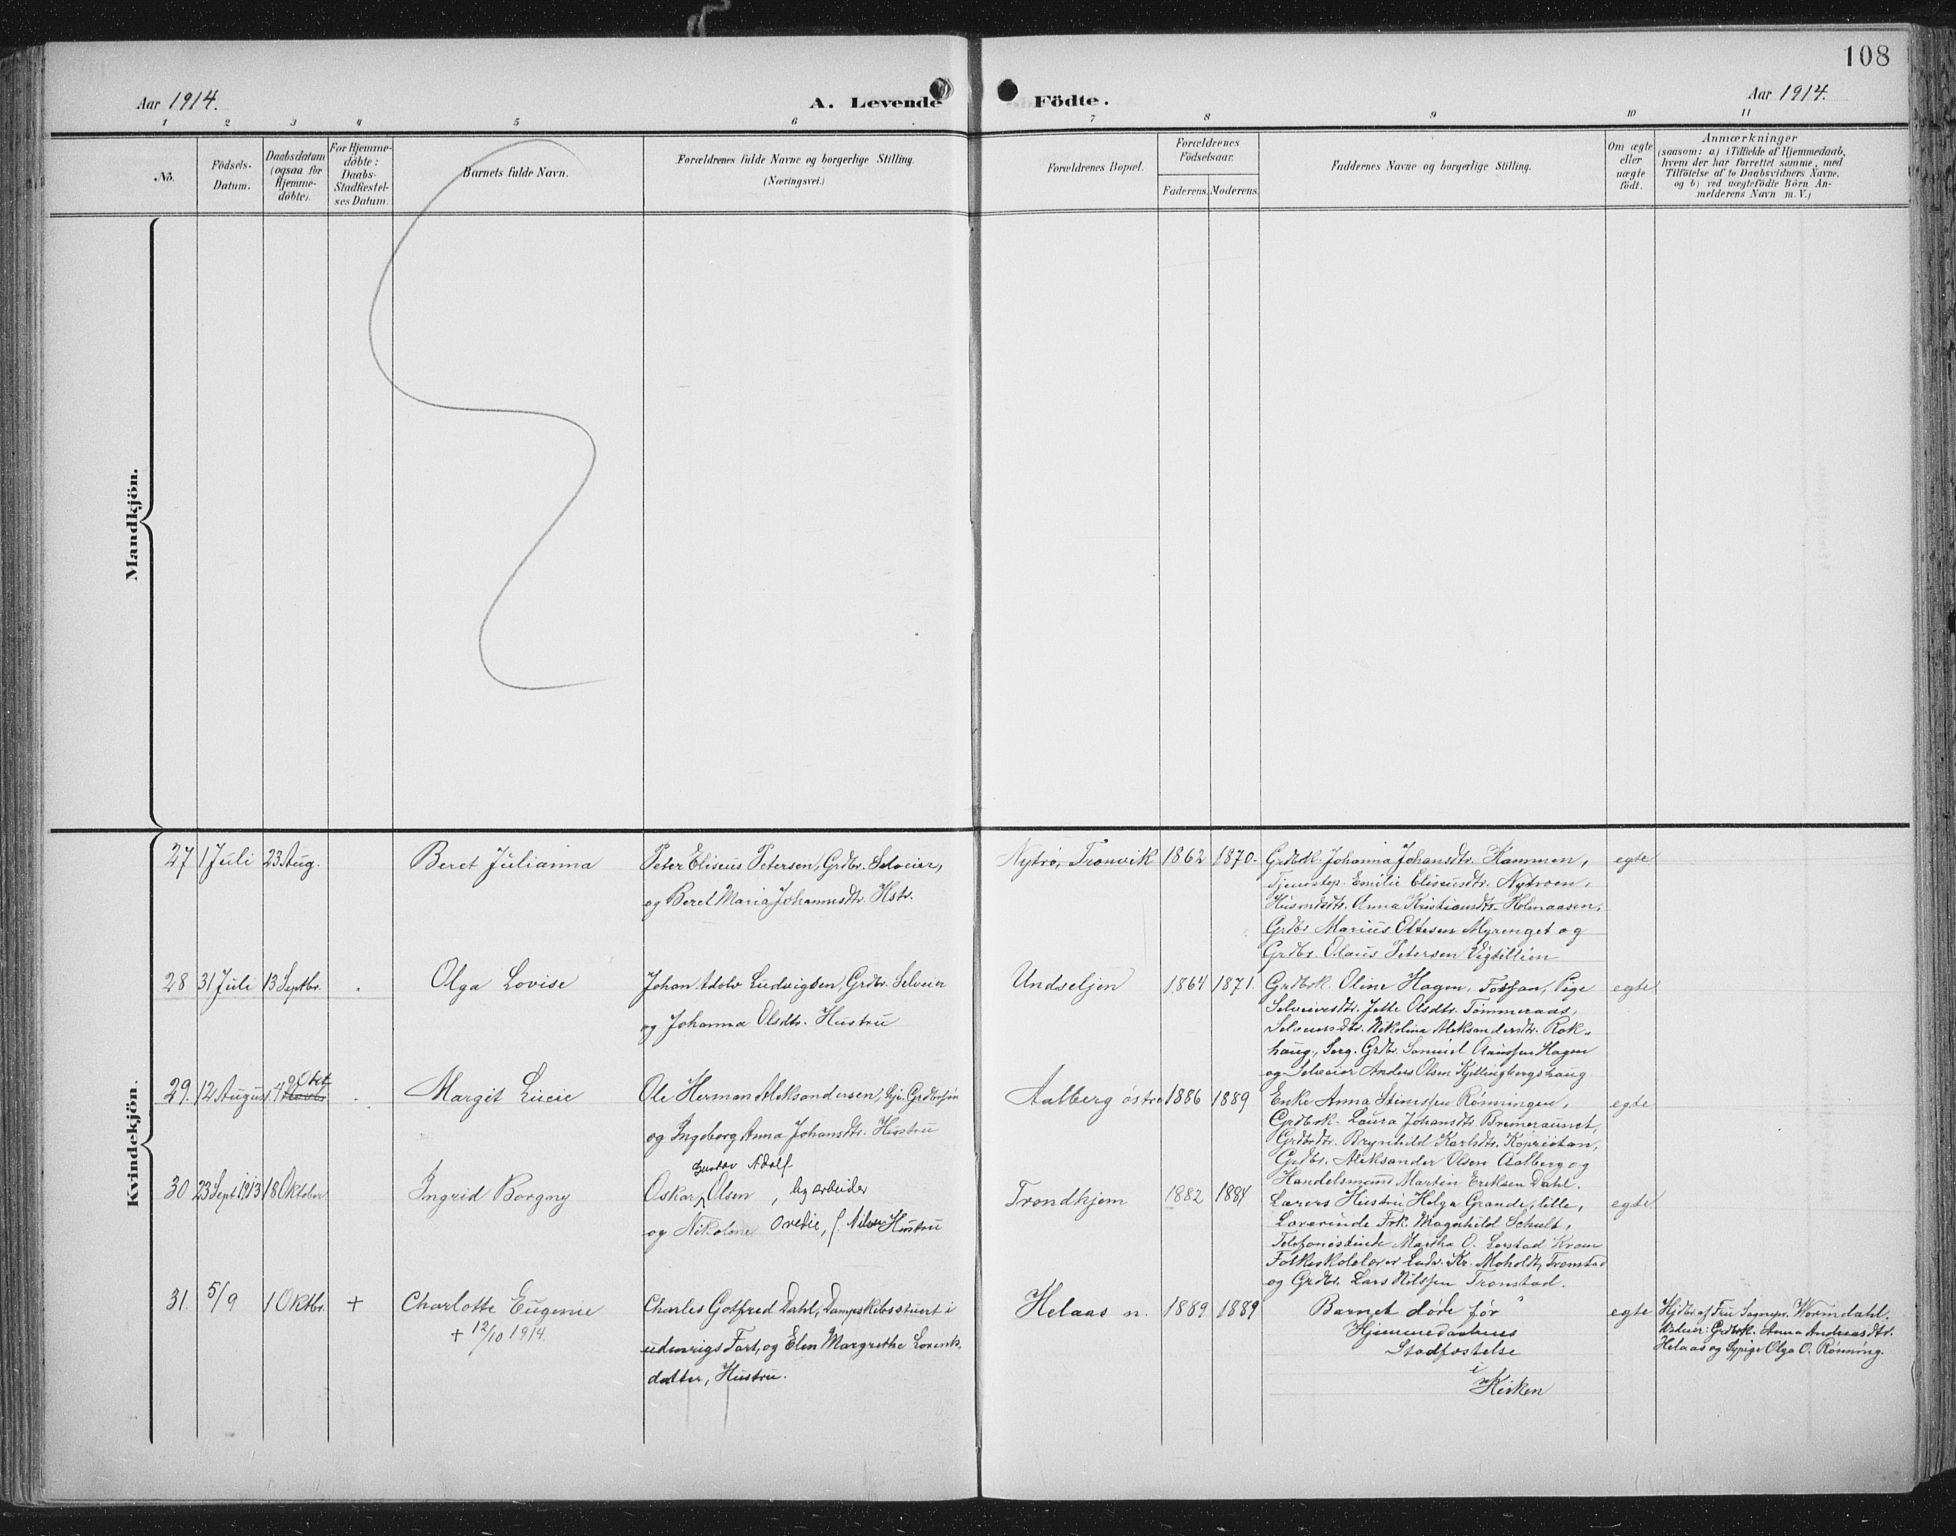 108
Aar 1914.
A. Levende Födte.
Aar 1914.
1 2 3 4 5 6 7 8 9 10 11
No.
Födsels-
Datum.
Daabsdatum
(ogsaa for
Hjemme-
döbte).
For Hjemme-
döbte:
Daabs-
Stadfæstel-
ses Datum.
Barnets fulde Navn.
Forældrenes fulde Navne og borgerlige Stilling.
(Næringsvei.)
Forældrenes Bopæl.
Forældrenes
Födselsaar.
Faderens. Moderens.
Faddernes Navne og borgerlige Stilling.
Om ægte
eller
uægte
födt.
Anmærkninger
(saasom: a) i Tilfælde af Hjemmedaab,
hvem der har forrettet samme, med
Tilföielse af to Daabsvidners Navne,
og b) ved uægtefödte Börn An-
melderens Navn m. V.)
Mandkjön.
Kvindekjön.
27 1 Juli 23 Aug. Beret Julianna
Peter Eliseus Petersen, Grdbr. Selveier,
og Beret Maria Johannesdtr. Hstr.
Nytrø, Tronvik 1862 1870.
Grdbrk. Johanna Johansdtr. Hammen,
Tjenestep. Emilie Eliseusdtr. Nytrøen,
Husmdsdtr. Anna Kristiansdtr. Holmaasen,
Grdbr Marius Ottesen Myrenget og
Grdbr. Olaus Petersen Vigtillien
egte
28 31 Juli 13 Septbr. Olga Lovise
Johan Adolv Ludvigsen, Grdbr. Selveier
og Johanna Olsdtr. Hustru
Undseljen 1864 1871.
Grdbrk. Oline Hagen, Fosfan, Pige
Selveiersdtr. Jette Olsdtr. Tømmeraas,
Selveiersdtr. Nikolina Aleksandersdtr. Rok-
haug, Serg. Grdbr. Samuel Hagen
og Selveier Anders Olsen Kyllingbergshaug.
egte
29. 12 August 4 Okt Margit Lucie
Ole Herman Aleksandersen, Grdbrsøn
og Ingeborg Anna Johansdtr. Hustru
Aalberg østre 1886 1889
Enke Anna Rønningen,
Grdbrk. Laura Johansdtr. Bremeraunet,
Grdbrdtr. Brynhild Karlsdtr. Kopristan,
Grdbr. Aleksander Olsen Aalberg og
Handelsmand Martin Eriksen Dahl.
egte
30 23 Sept 1913 18 Oktober Ingrid Borgny
Gustav Adolf
Oskar Olsen, byarbeider
og Nikoline Ovedie, f. Nilsen Hustru
Trondhjem 1882 1884
Lærers Hustru Helga Grande, lille,
Lærerinde Frk. Magnhild Schult,
Telefonistinde Martha O. Lorstad
Folkeskolelærer Ludv. Kr. Moholdt, Tronstad
og Grdbr. Lars Nilssen Tronstad.
egte
31. 5/9 1 Oktbr. + Charlotte Eugenie
+ 12/10 1914.
Charles Gotfred Dahl, Dampskibsstuert i
udenrigs Fart, og Elen Margrethe Lorents-
datter, Hustru.
Helaas n. 1889 1889
Barnet døde før
Hjemmedaabens
Stadfæstelse
i
Kirken
egte
Hjdbt. af Fru Sognepr. Wormdahl.
Vidner: Grdbrk. Anna Andreasdtr.
Helaas og Sypige Olga O. Rønning.